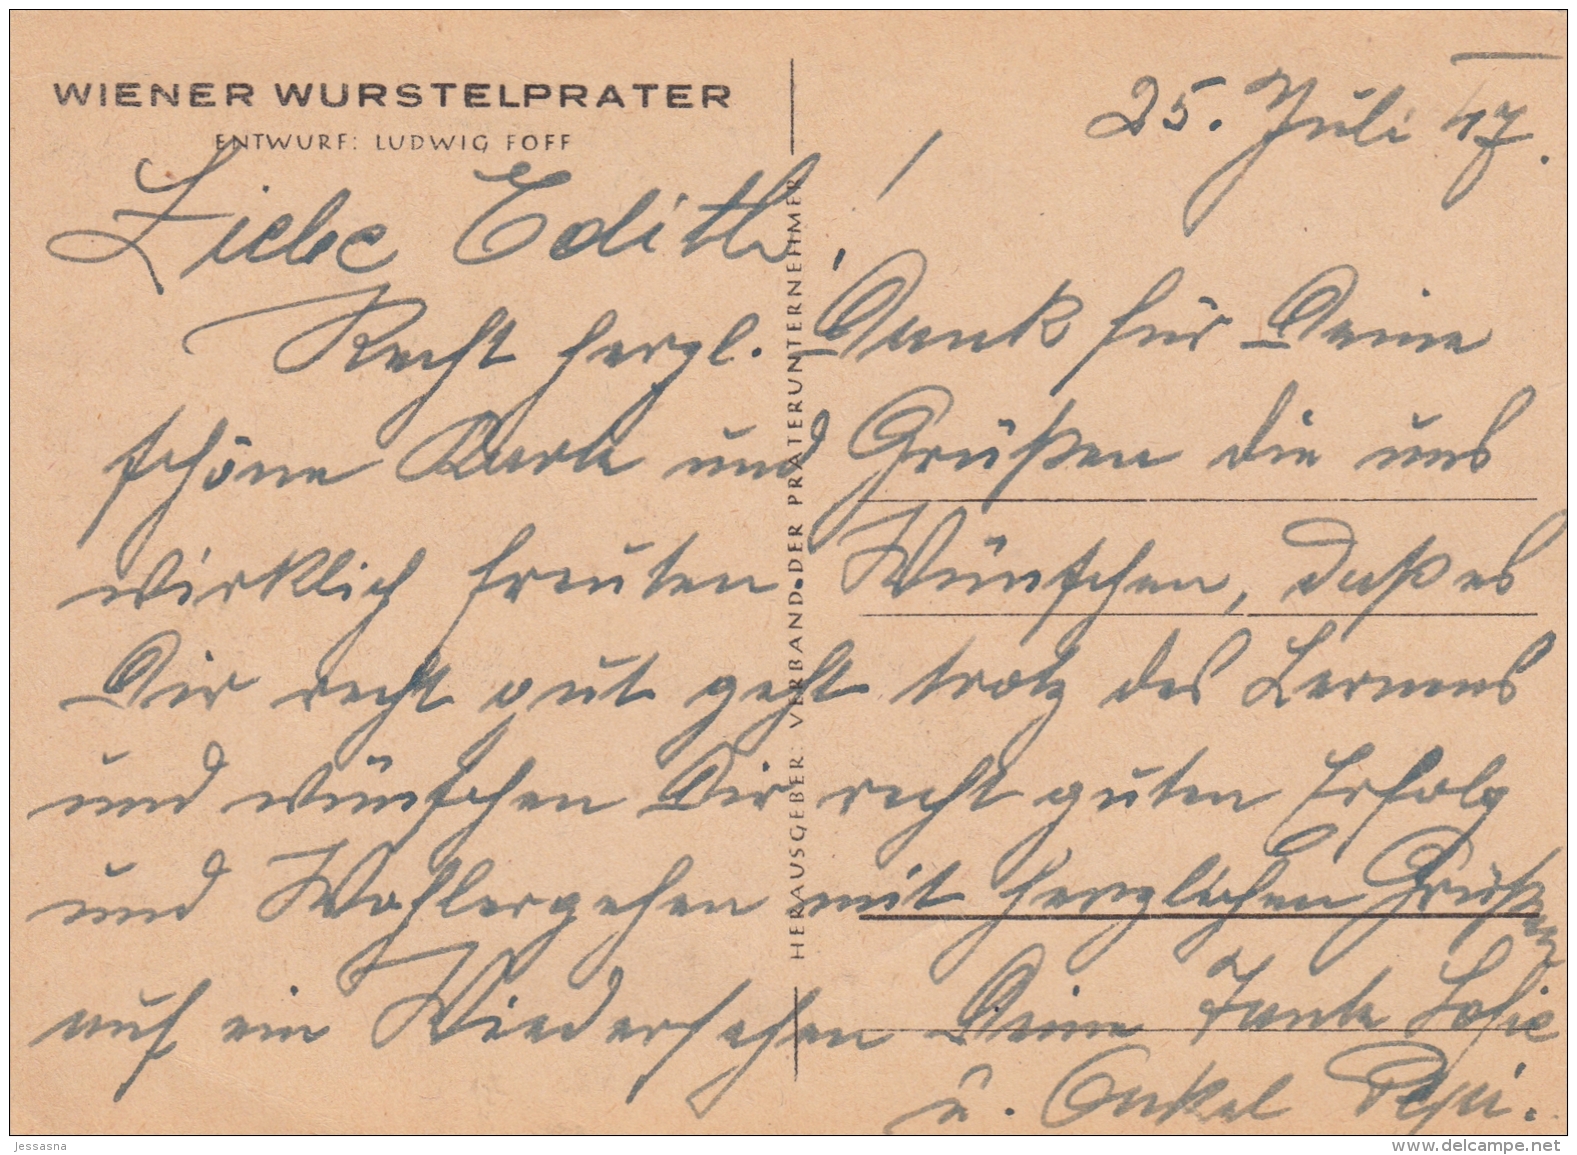 WIENER WURSTELPRATER
ENTWURF: LUDWIG FOFF
HERAUSGEBER: VERBAND DER PRATERUNTERNEHMER
25. Juli 47.
Liebe Edith!
Recht herzl. Dank für Deine
schöne Karte und Grüßen die uns
wirklich freuten Wünschen, daß es
Dir recht gut geht trotz des Lernens
und wünschen Dir recht guten Erfolg
und Wohlergehen mit herzlichen Grüßen
auf ein Wiedersehen Deine Tante
u. Onkel Pepi.
jessasna
www.delcampe.net